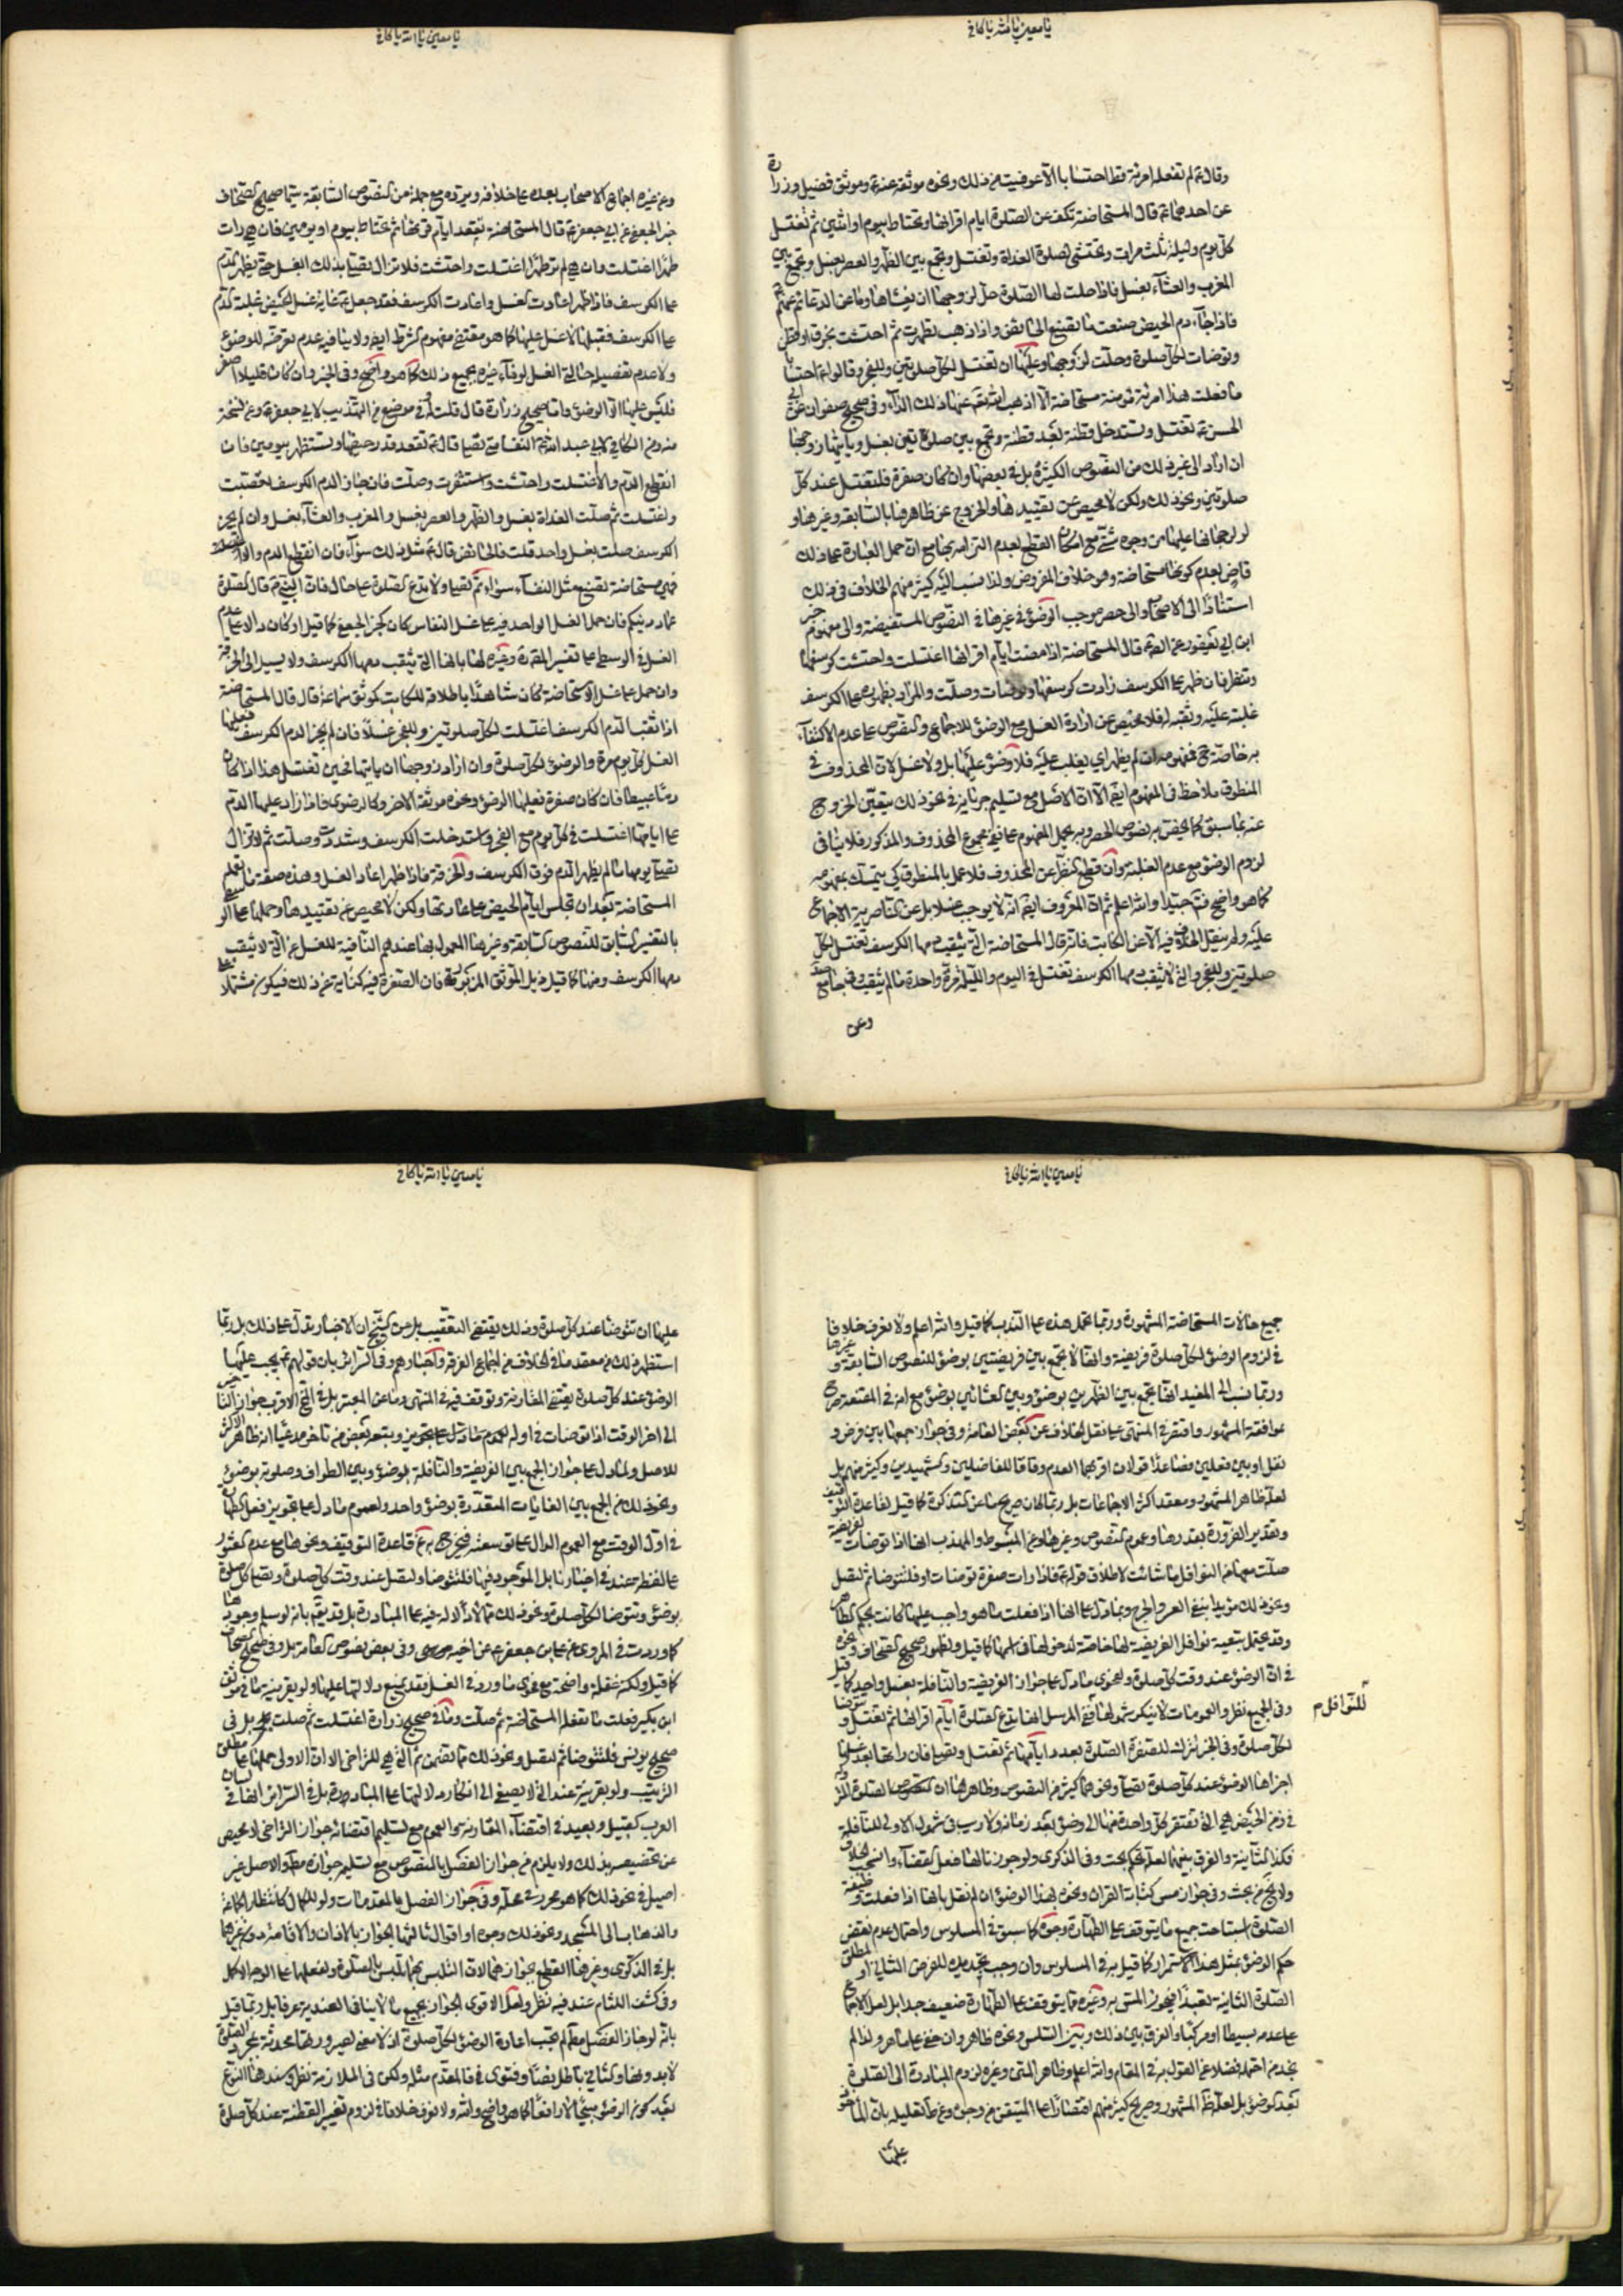 يا معين يا الله يا كافي
وقال ع لم تفعله امرئة قط احتسابا الا عوفيت من ذلك ونحوه موثقه عنه ع وموثق فضيل وزرارة
عن احدهما ع قال المستحاضة تكف عن الصلوة ايام اقرائها وتحتاط بيوم او اثنين ثم تغتسل
كل يوم وليلة ثلث مرات وتحتشي لصلوة الغداة وتغتسل وتجمع بين الظهر والعصر بغسل وتجمع بين
المغرب والعشاء بغسل فاذا حلت لها الصلوة حل لزوجها ان يغشاها وما عن الدعائم عنهم ع
فاذا جاء دم الحيض صنعت ما تصنع الحائض واذا ذهب تطهرت ثم احتشت بخرق او قطن
وتوضات لكل صلوة وحلت لزوجها وعليها ان تغتسل لكل صلوتين وللفجر وقالوا ع احتسابا
ما فعلت هذا امرئة مؤمنة مستحاضة الا اذهب الله تعالى عنها ذلك الداء وفي صحيح صفوان عن ابي
الحسن ع تغتسل وتستدخل قطنة بعد قطنة وتجمع بين صلوتين بغسل وياتيها زوجها
ان اراد الى غير ذلك من النصوص الكثيرة بل في بعضها وان كان صفرة فلتغتسل عند كل
صلوتين ونحو ذلك ولكن لا محيص عن تقييدها والخروج عن ظاهرها بالسابقة وغيرها و
لو لرجحانها عليها من وجوه شتى مع امكان القطع بعدم التزامه بجامع ان حمل العبارة على ذلك
قاض بعدم كونها مستحاضة وهو خلاف المفروض ولذا نسب اليه كثير منهم الخلاف في ذلك
استنادا الى الاصل والى حصر موجب الوضوء في غيرها في النصوص المستفيضة والى مفهوم خبر
ابن ابي يعفور عنه ع قال المستحاضة اذا مضت ايام اقرائها اغتسلت واحتشت كرسفها
وتنظر فان ظهر على الكرسف زادت كرسفها وتوضات وصلت والمراد بظهوره على الكرسف
غلبته عليه وثقبه له فلا محيص عن ارادة الغسل مع الوضوء للاجماع والنصوص على عدم الاكتفاء
به خاصة ح فمفهومه ان لم يظهر اي يغلب عليه فلا وضوء عليها بل ولا غسل لان المحذوف في
المنطوق ملاحظ في المفهوم ايضا الا ان الاصل مع تسليم جريانه في نحو ذلك يتعين الخروج
عنه بما سبق كما يخص به نصوص الحصر وبه يحمل المفهوم على نفي مجموع المحذوف والمذكور فلا ينافي
لزوم الوضوء مع عدم الغلبة وان قطع النظر عن المحذوف فلا عمل بالمنطوق كي يتمسك بمفهومه
كما هو واضح فتدبر جيدا والله اعلم ثم ان المعروف ايضا انه لا يوجب غسلا بل عن الناصرية الاجماع
عليه ولم ينقل الخلاف فيه الا عن الكاتب فانه قال المستحاضة التي يثقب دمها الكرسف تغتسل لكل
صلوتين وللفجر والتي لا يثقب دمها الكرسف تغتسل في اليوم والليلة مرة واحدة ما لم يثقب وفي جامع
وعن
يا معين يا الله يا كافي
وعن غيره اجماع الاصحاب بعده على خلافه ويرده مع جملة من النصوص السابقة سيما صحيح الصحاف
خبر الجعفي عن ابي جعفر ع قال المستحاضة تقعد ايام قرئها ثم تحتاط بيوم او يومين فان هي رات
طهرا اغتسلت وان هي لم تر طهرا اغتسلت واحتشت فلا تزال تصلي بذلك الغسل حتى يظهر الدم
على الكرسف فاذا ظهر اعادت الغسل واعادت الكرسف فقد جعل ع غاية غسل الحيض غلبة الدم
على الكرسف فقبلها لا غسل عليها كما هو مقتضى مفهوم الشرط ايضا ولا ينافيه عدم تعرضه للوضوء
ولا عدم تفصيله حالتي الغسل لوفاء غيره بجميع ذلك كما هو واضح وفي الخبر وان كان قليلا اصفر
فليس عليها الا الوضوء واما صحيح زرارة قال قلت له في موضع من التهذيب لابي جعفر ع وعن نسخة
منه ومن الكافي لابي عبد الله ع النفساء متى تصلي قال ع تقعد قدر حيضها وتستظهر بيومين فان
انقطع الدم والا اغتسلت واحتشت واستثفرت وصلت فان جاز الدم الكرسف تعصبت
واغتسلت ثم صلت الغداة بغسل والظهر والعصر بغسل والمغرب والعشاء بغسل وان لم يجز
الكرسف صلت بغسل واحد قلت فالحائض قال ع مثل ذلك سواء فان انقطع الدم والا
فهي مستحاضة تصنع مثل النفساء سواء ثم تصلي ولا تدع الصلوة على حال فان النبي ص قال الصلوة
عماد دينكم فان حمل الغسل الواحد فيه على غسل النفاس كان كخبر الجعفي كما قيل او كان دالا على عدم
الغسل في الوسطى على تفسير المقدمة وغيره لها بانها التي تثقب دمها الكرسف ولا يسيل الى الخرقة
وان حمل على غسل الاستحاضة كان شاهدا باطلاقه للكاتب كموثق سماعة قال قال المستحاضة
اذا ثقب الدم الكرسف اغتسلت لكل صلوتين وللفجر غسلا فان لم يجز الدم الكرسف فعليها
الغسل كل يوم مرة والوضوء لكل صلوة وان اراد زوجها ان ياتيها فحين تغتسل هذا اذا كان
دما عبيطا فان كان صفرة فعليها الوضوء ونحوه موثقه الاخر وكالرضوي فاذا زاد عليها الدم
على ايامها اغتسلت في كل يوم مع الفجر واستدخلت الكرسف وشدت وصلت ثم لا تزال
تصلي يومها ما لم يظهر الدم فوق الكرسف والخرقة فاذا ظهر اعادت الغسل وهذه صفة ما تعمله
المستحاضة بعد ان تجلس ايام الحيض على عادتها ولكن لا محيص عن تقييدها وحملها على الوسطى
بالتفسير السابق للنصوص السابقة وغيرها المعمول بها عندهم النافية للغسل عن التي لا يثقب
دمها الكرسف ومنها كما قيل ذيل الموثق المذكور فان الصفرة فيه كناية عن ذلك فيكون مشتملا على
يا معين يا الله يا كافي
جميع حالات المستحاضة المشهورة وربما تحمل هذه على الندب كما قيل والله اعلم ولا نعرف خلافا
في لزوم الوضوء لكل صلوة فريضة وانها لا تجمع بين فريضتين بوضوء للنصوص السابقة وغيرها
وربما نسب الى المفيد انها تجمع بين الظهرين بوضوء وبين العشائين بوضوء مع انه في المقنعة صرح
بموافقة المشهور واقتصر في المنتهى على نقل الخلاف عن بعض العامة وفي جواز جمعها بين فرض و
نفل او بين نفلين فصاعدا قولان اقربهما العدم وفاقا للفاضلين والشهيدين وكثير منهم بل
لعله ظاهر المشهور ومعقد اكثر الاجماعات بل ربما كان صريحها عن التذكرة كما قيل لقاعدة التوقيف
وتقدير الضرورة بقدرها وعموم النصوص وغيرها وعن المبسوط والمهذب انها اذا توضات لفريضة
صلت معها من النوافل ما شائت لاطلاق قوله ع فاذا رات صفرة توضات او فلتتوضا ثم لتصل
ونحو ذلك مؤيدا بنفي العسر والحرج وبما دل على انها اذا فعلت ما هو واجب عليها كانت بحكم الطاهر
وقد يحتمل بتعية نوافل الفريضة لها خاصة لدخولها في اسمها كما قيل ولظهور صحيح الصحاف وغيره
في ان الوضوء عند وقت كل صلوة ولفحوى ما دل على جواز الفريضة والنافلة بغسل واحد كما قيل
وفي الجميع نظر والعمومات لا ينكر شمولها ففي المرسل انها تدع الصلوة ايام اقرائها ثم تغتسل وتتوضا
للنوافل م
لكل صلوة وفي الخبر تترك للصفرة الصلوة بعدد ايامها ثم تغتسل وتصلي فان راتها بعد غسلها
اجزاها الوضوء عند كل صلوة تصلي ونحوهما كثير من النصوص وظاهرها ان الصلوة
في زمن الحيض هي التي تفتقر كل واحدة منها الى وضوء بعد زمانه ولا ريب في شمول الاولى للنافلة
فكذا الثانية والفرق بينهما لعله تحكم بحت وفي الذكرى ولو جوزنا لها فعل القضاء وانسحب الخلاف
ولا يخلو من بحث وفي جواز مس كتابة القران ونحوه بهذا الوضوء ان لم نقل بانها اذا فعلت وظيفة
الصلوة استباحت جميع ما يتوقف على الطهارة وجوه كما سبق في المسلوس واحتمال عدم نقض
حكم الوضوء بمثل هذا الاستمرار كما قيل به في المسلوس وان وجب تجديده للفرض الثاني او مطلق
الصلوة الثانية تعبدا فيجوز المس به وغيره مما يتوقف على الطهارة ضعيف جدا بل لعل الاجماع
على عدمه بسيطا او مركبا والفرق بين ذلك وبين السلس ونحوه ظاهر وان خفي على ماهر ولذا لم
نجد من احتمله فضلا عن القول به في المقام والله اعلم وظاهر المتن وغيره لزوم المبادرة الى الصلوة
بعد الوضوء بل لعله ظاهر المشهور وصريح كثير منهم اقتصارا على المتيقن من وجوه وعن ط تعليله بان الماخوذ
عليها
يا معين يا الله يا كافي
عليها ان تتوضا عند كل صلوة وذلك يقتضي التعقيب بل عن الشيخ ان الاخبار تدل على ذلك بل ربما
استظهر ذلك من معقد ما في الخلاف من اجماع الفرقة واخبارهم وفي السرائر بان قولهم ع يجب عليها
الوضوء عند كل صلوة يقتضي المقارنة وتوقف فيه في المنتهى وما عن المعتبر بل في المخ الاقرب جواز التاخير
الى اخر الوقت اذا توضات في اوله لعموم ما دل على تجويزه وتبعه بعض من تاخر مدعيا انه ظاهر الاكثر
للاصل ولما دل على جواز الجمع بين الفريضة والنافلة بوضوء وبين الطواف وصلوته بوضوء
ونحو ذلك من الجمع بين الغايات المتعددة بوضوء واحد ولعموم ما دل على تجويز فعل الطهارة
في اول الوقت مع العموم الدال على توسعته فيخرج به عن قاعدة التوقيف ونحوها مع عدم العثور
على لفظ عند في اخبارنا بل الموجود فيها فلتتوضا ولتصل عند وقت كل صلوة وتصلي كل صلوة
بوضوء وتتوضا لكل صلوة ونحو ذلك مما لا دلالة فيه على المبادرة بل قد يقال بانه لو سلم وجودها
كما وردت في المروي عن علي بن جعفر ع عن اخيه موسى وفي بعض نصوص العامة بل وفي صحيح الصحاف
كما قيل ولكنه غفلة واضحة مع فحوى ما ورد في الغسل يقد بمنع دلالتها عليها ولو بقرينة ما في موثق
ابن بكير فعلت ما تفعله المستحاضة ثم صلت وما في صحيح زرارة اغتسلت ثم صلت بل في
صحيح يونس فلتتوضا ثم لتصل ونحو ذلك مما تضمن ثم التي هي للتراخي الا ان الاولى حملها على مطلق
الترتيب ولو بقرينة عند التي لا يصغى الى انكار دلالتها على المبادرة بل في السرائر انها في لسان
العرب كقبيل وبعيد في اقتضاء المقارنة والعموم مع تسليم اقتضائه جواز التراخي لا محيص
عن تخصيصه بذلك ولا يلزم من جواز الفصل بالنصوص مع تسليم جوازه مطلقا والاصل غير
اصيل في نحو ذلك كما هو محرر في محله وفي جواز الفصل بالمقدمات ولو للكمال كانتظار الجماعة
والذهاب الى المسجد ونحو ذلك وجوه او اقوال ثالثها الجواز بالاذان والاقامة دون غيرهما
بل في الذكرى وغيرها القطع بجواز هما لان التلبس بهما تلبس بالصلوة ولفعلها على الوجه الاكمل
وفي كشف اللثام عند فيه نظر ولعل الاقوى الجواز بجميع ما لا ينافي العندية عرفا بل ربما قيل
بانه لو جاز الفصل مطلقا لم تجب اعادة الوضوء لكل صلوة اذ لا معنى لصيرورتها محدثة بمجرد الصلوة
لا بدونها والتالي باطل نصا وفتوى فالمقدم مثله ولكن في الملازمة نظر وسندها النوع
بعد كون الوضوء مبيحا لا رافعا كما هو واضح والله ولا نعرف خلافا في لزوم تغيير القطنة عند كل صلوة